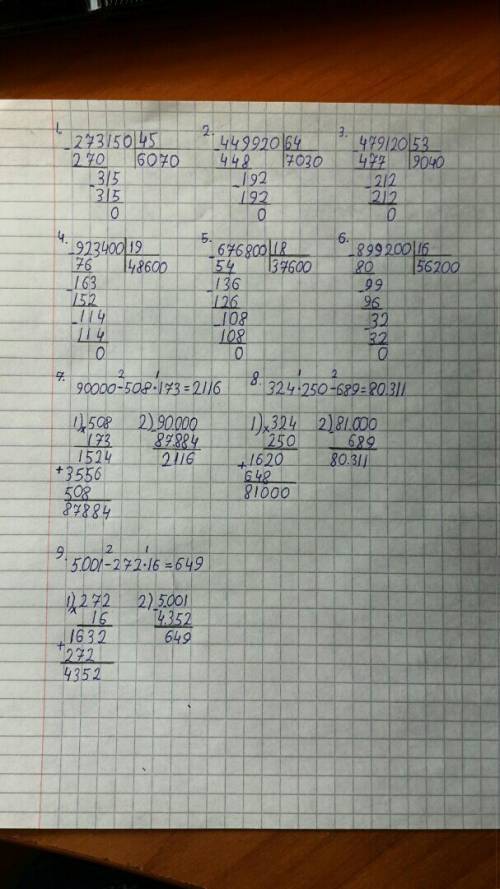 1. 2. 3.
273150 45 449920 64 479120 53
270 6070 448 7030 477 9040
-315 -192 -212
315 192 212
0 0 0
4. 5. 6.
-923400 19 -676800 18 -899200 16
76 48600 54 37600 80 56200
-163 -136 -99
152 126 96
-114 -108 -32
114 108 32
0 0 0
7. 2 1 8. 1 2
90000-508·173=2116 324·250-689=80.311
1) 508 2) 90.000 1) 324 2) 81.000
× 173 87884 × 250 689
1524 2116 1620 80.311
+ 3556 + 648
508 81000
87884
9. 2 1
5.001-272·16=649
1) 272 2) 5.001
× 16 4.352
1632 649
+ 272
4352